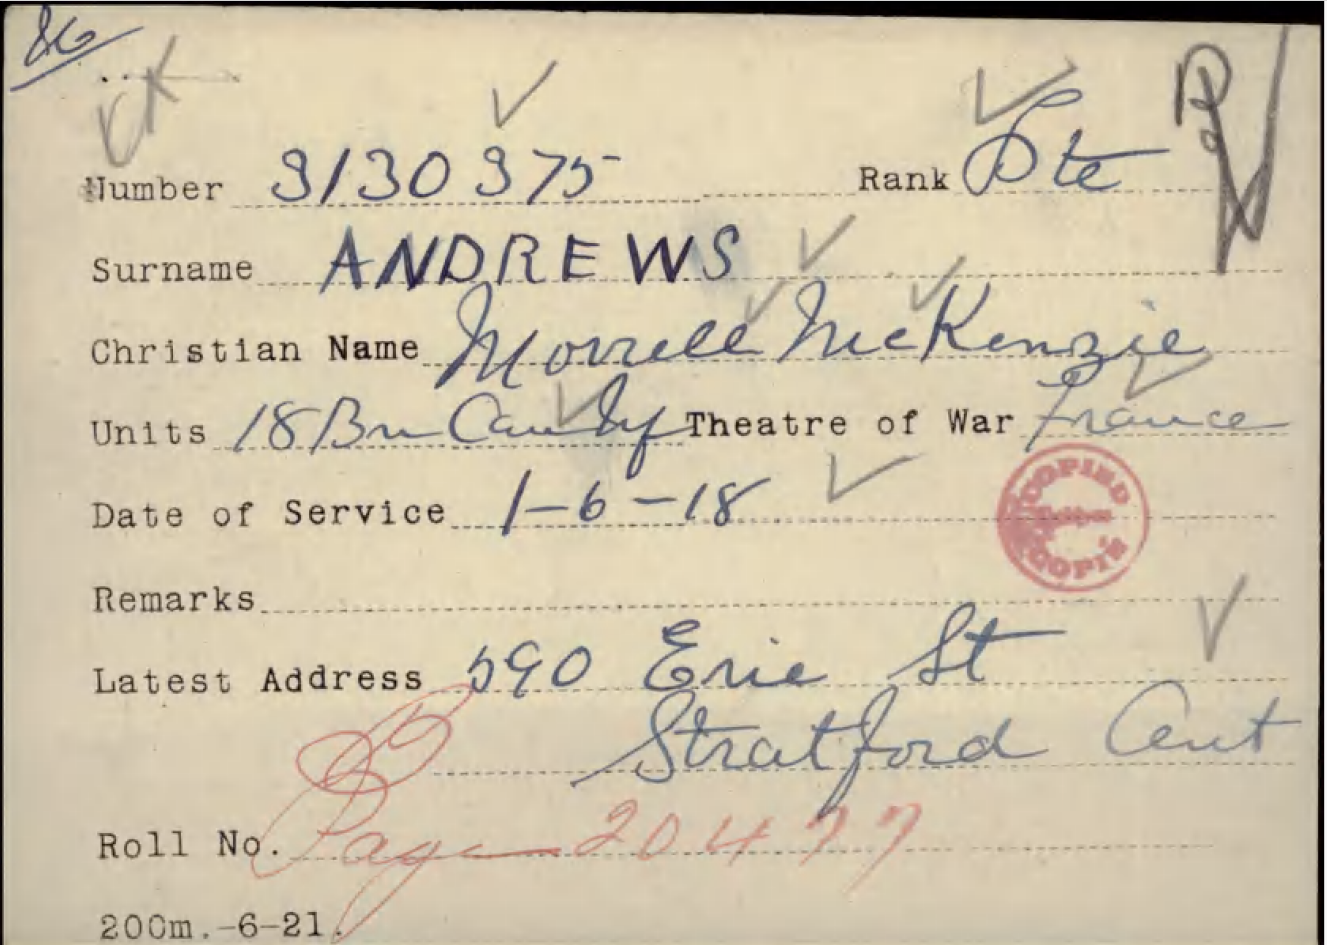 86
CK
Number 3130375 Rank Pte
Surname ANDREWS
Christian Name Morrell McKenzie
Units 18 Bn Can Inf Theatre of War France
Date of Service 1-6-18
COPIED
COPIÉ
Remarks
Latest Address 590 Erie St
Stratford Ont
B
Roll No. Page 20477
200m.-6-21.